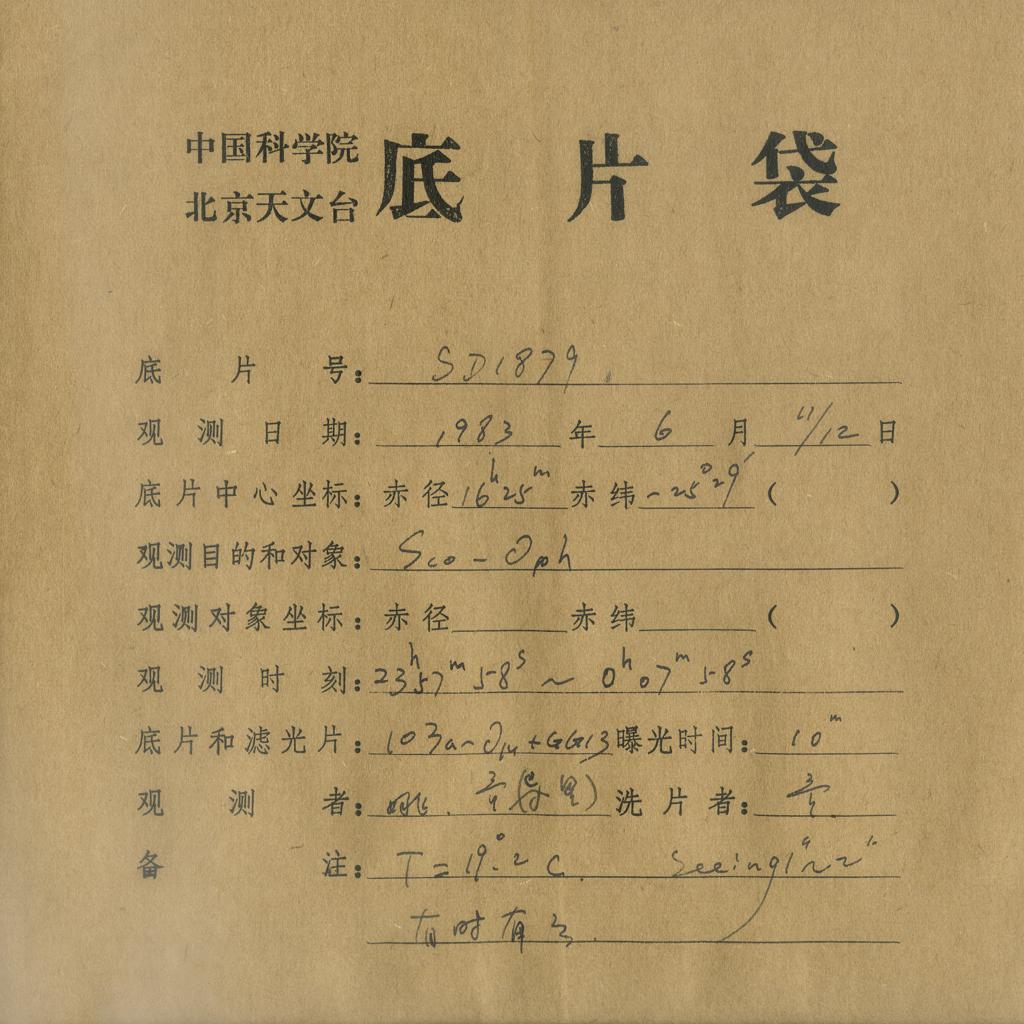 中国科学院
北京天文台 底片袋
底片号: SD1879
观测日期: 1983 年 6 月 11/12 日
底片中心坐标: 赤径 16ʰ25ᵐ 赤纬 -25°29′ ( )
观测目的和对象: Sco - Oph
观测对象坐标: 赤径 赤纬 ( )
观测时刻: 23ʰ57ᵐ58ˢ ~ 0ʰ07ᵐ58ˢ
底片和滤光片: 103a-O + GG13 曝光时间: 10ᵐ
观测者: 洗片者:
备注: T = 19°.2 C. Seeing 1″~2″
有时有云.